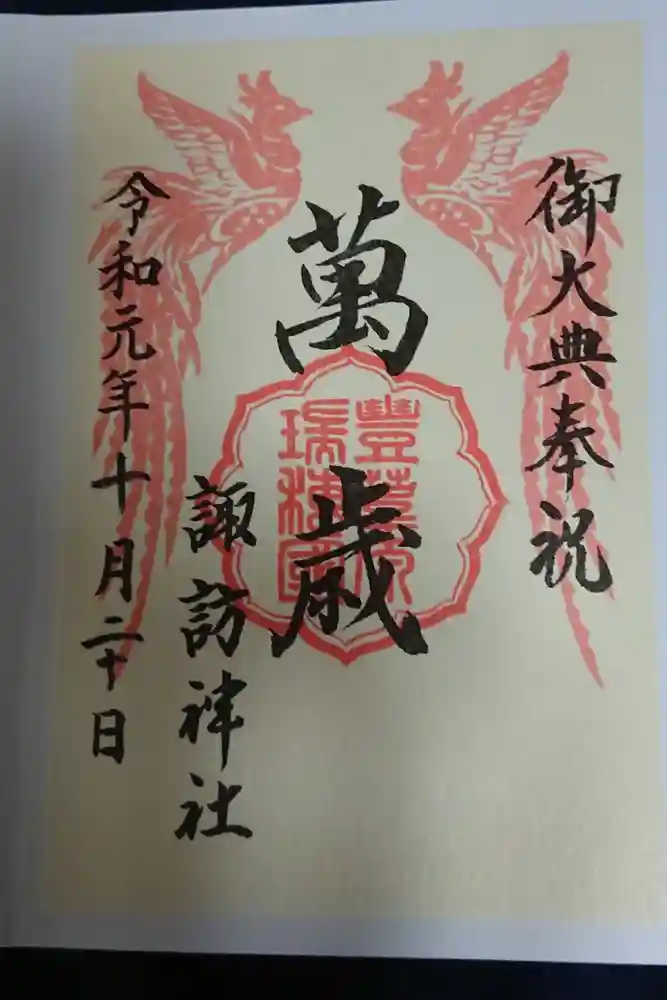 御大典奉祝
萬歳
豊葦原
瑞穂國
諏訪神社
令和元年十月二十日